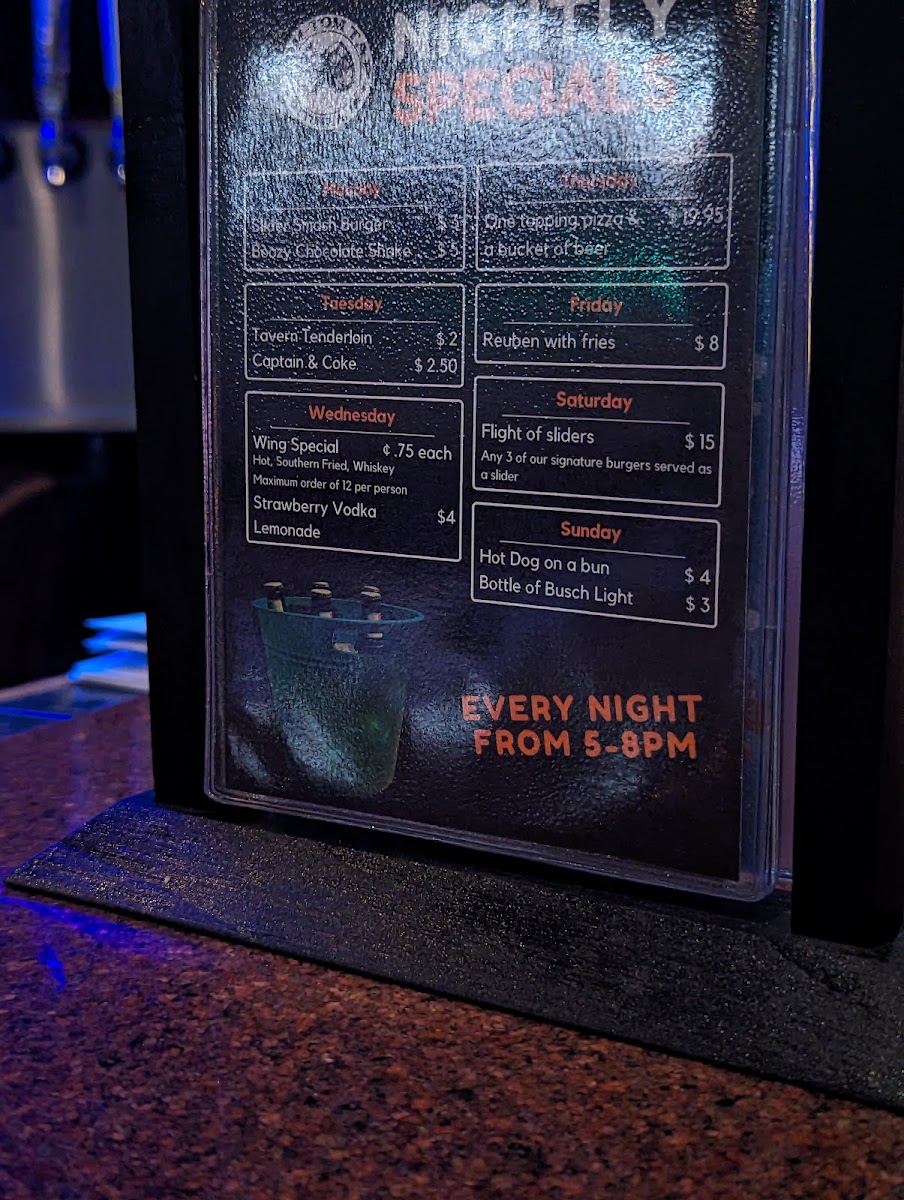 NIGHTLY
SPECIALS
Monday
Slider Smash Burger $3
Boozy Chocolate Shake $5
Tuesday
Tavern Tenderloin $2
Captain & Coke $2.50
Wednesday
Wing Special ¢.75 each
Hot, Southern Fried, Whiskey
Maximum order of 12 per person
Strawberry Vodka $4
Lemonade
Thursday
One topping pizza & $19.95
a bucket of beer
Friday
Reuben with fries $8
Saturday
Flight of sliders $15
Any 3 of our signature burgers served as
a slider
Sunday
Hot Dog on a bun $4
Bottle of Busch Light $3
EVERY NIGHT
FROM 5-8PM